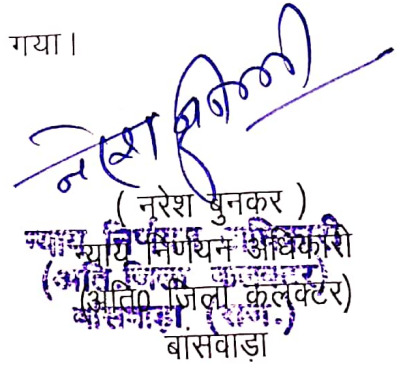 गया।
नरेश बुनकर
( नरेश बुनकर )
न्याय निर्णयन अधिकारी
(अति0 जिला कलक्टर)
बांसवाड़ा